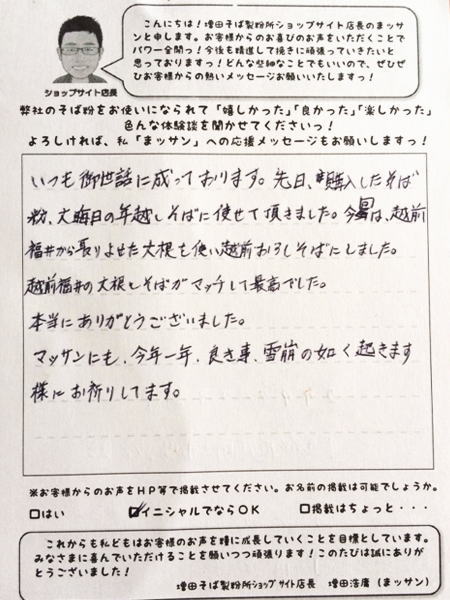 こんにちは！増田そば製粉所ショップサイト店長のまッサ
ンと申します。お客様からのお喜びのお声をいただくことで
パワー全開っ！今後も精進して挽きに頑張っていきたいと
思っておりますっ！どんな些細なことでもいいので、ぜひぜ
ひお客様からの熱いメッセージお願いいたしますっ！
ショップサイト店長
弊社のそば粉をお使いになられて「嬉しかった」「良かった」「楽しかった」
色んな体験談を聞かせてくださいっ！
よろしければ、私「まッサン」への応援メッセージもお願いしますっ！
いつも御世話に成っております。先日、購入したそば
粉、大晦日の年越しそばに使せて頂きました。今回は、越前
福井から取りよせた大根を使い越前おろしそばにしました。
越前福井の大根とそばがマッチして最高でした。
本当にありがとうございました。
マッサンにも、今年一年、良き事、雪崩の如く起きます
様にお祈りしてます。
※お客様からのお声をHP等で掲載させてください。お名前の掲載は可能でしょうか。
□はい ☑イニシャルでならOK □掲載はちょっと・・・
これからも私どもはお客様のお声を糧に成長していくことを目標としています。
みなさまに喜んでいただけることを願いつつ頑張ります！このたびは誠にありが
とうございました！
増田そば製粉所ショップサイト店長 増田浩庸（まッサン）